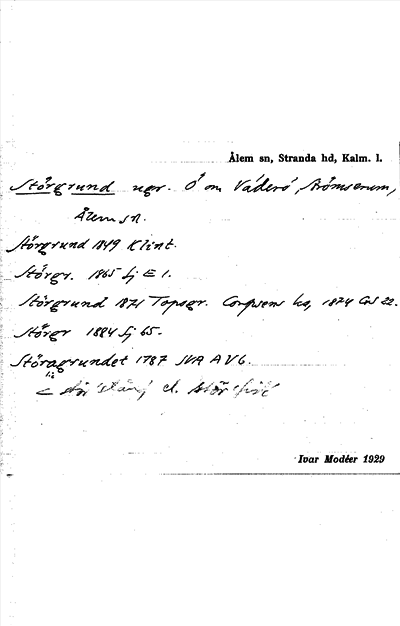 Ålem sn, Stranda hd, Kalm. l.
Störgrund ugr. Ö om Väderö, Strömserum,
Ålem sn.
Störgrund 1849 Klint.
Störgr. 1865 Sj E 1.
Störgrund 1871 Topogr. Corpsens ka, 1874 GS 22.
Störgr 1884 Sj 65.
Störagrundet 1787 SVA AV6.
< stör 'stång' el. stör 'fisk'
Ivar Modéer 1929